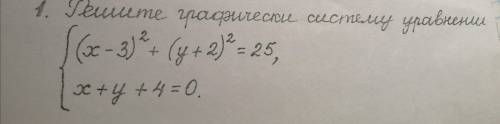 1. Решите графически систему уравнении
(x-3)² + (y+2)² = 25,
x+y+4=0.